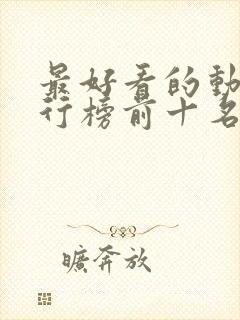 最好看的動
行榜前十名
曠奔放